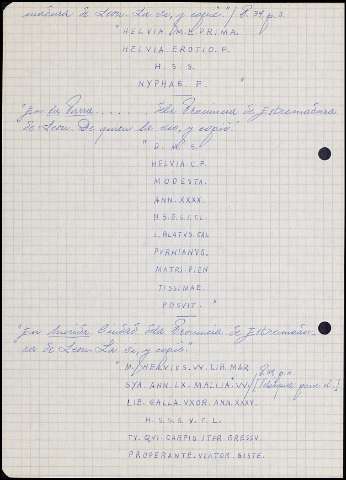 madura de Leon. La vi, y copié." / P. 39, p. 3.
"HELVIA / M.F. PRIMA.
HELVIA EROTIO. F.
H. S. S.
NYPHAE. F. "
"En la Parra..... dela Provincia de Estremadura
de Leon. De quien la vio, y copió."
"D. M. S.
HELVIA C.F.
MODESTA.
ANN. XXXX.
H.S.E.S.T.T.L.
L. BLATVS. CAL
PVRNIANVS.
MATRI PIEN
TISSIMAE.
POSVIT. "
"En Merida Ciudad dela Provincia de Estremadu-
ra de Leon. La vi, y copié."
"M. HELVIVS. VV. LIB. MAR
SVA. ANN. LX. MALLIA. VV /
LIB. GALLA. VXOR. ANN. XXXV.
H. S. S. S. V. T. L.
TV. QVI CARPIS ITER GRESSV
PROPERANTE. VIATOR. SISTE.